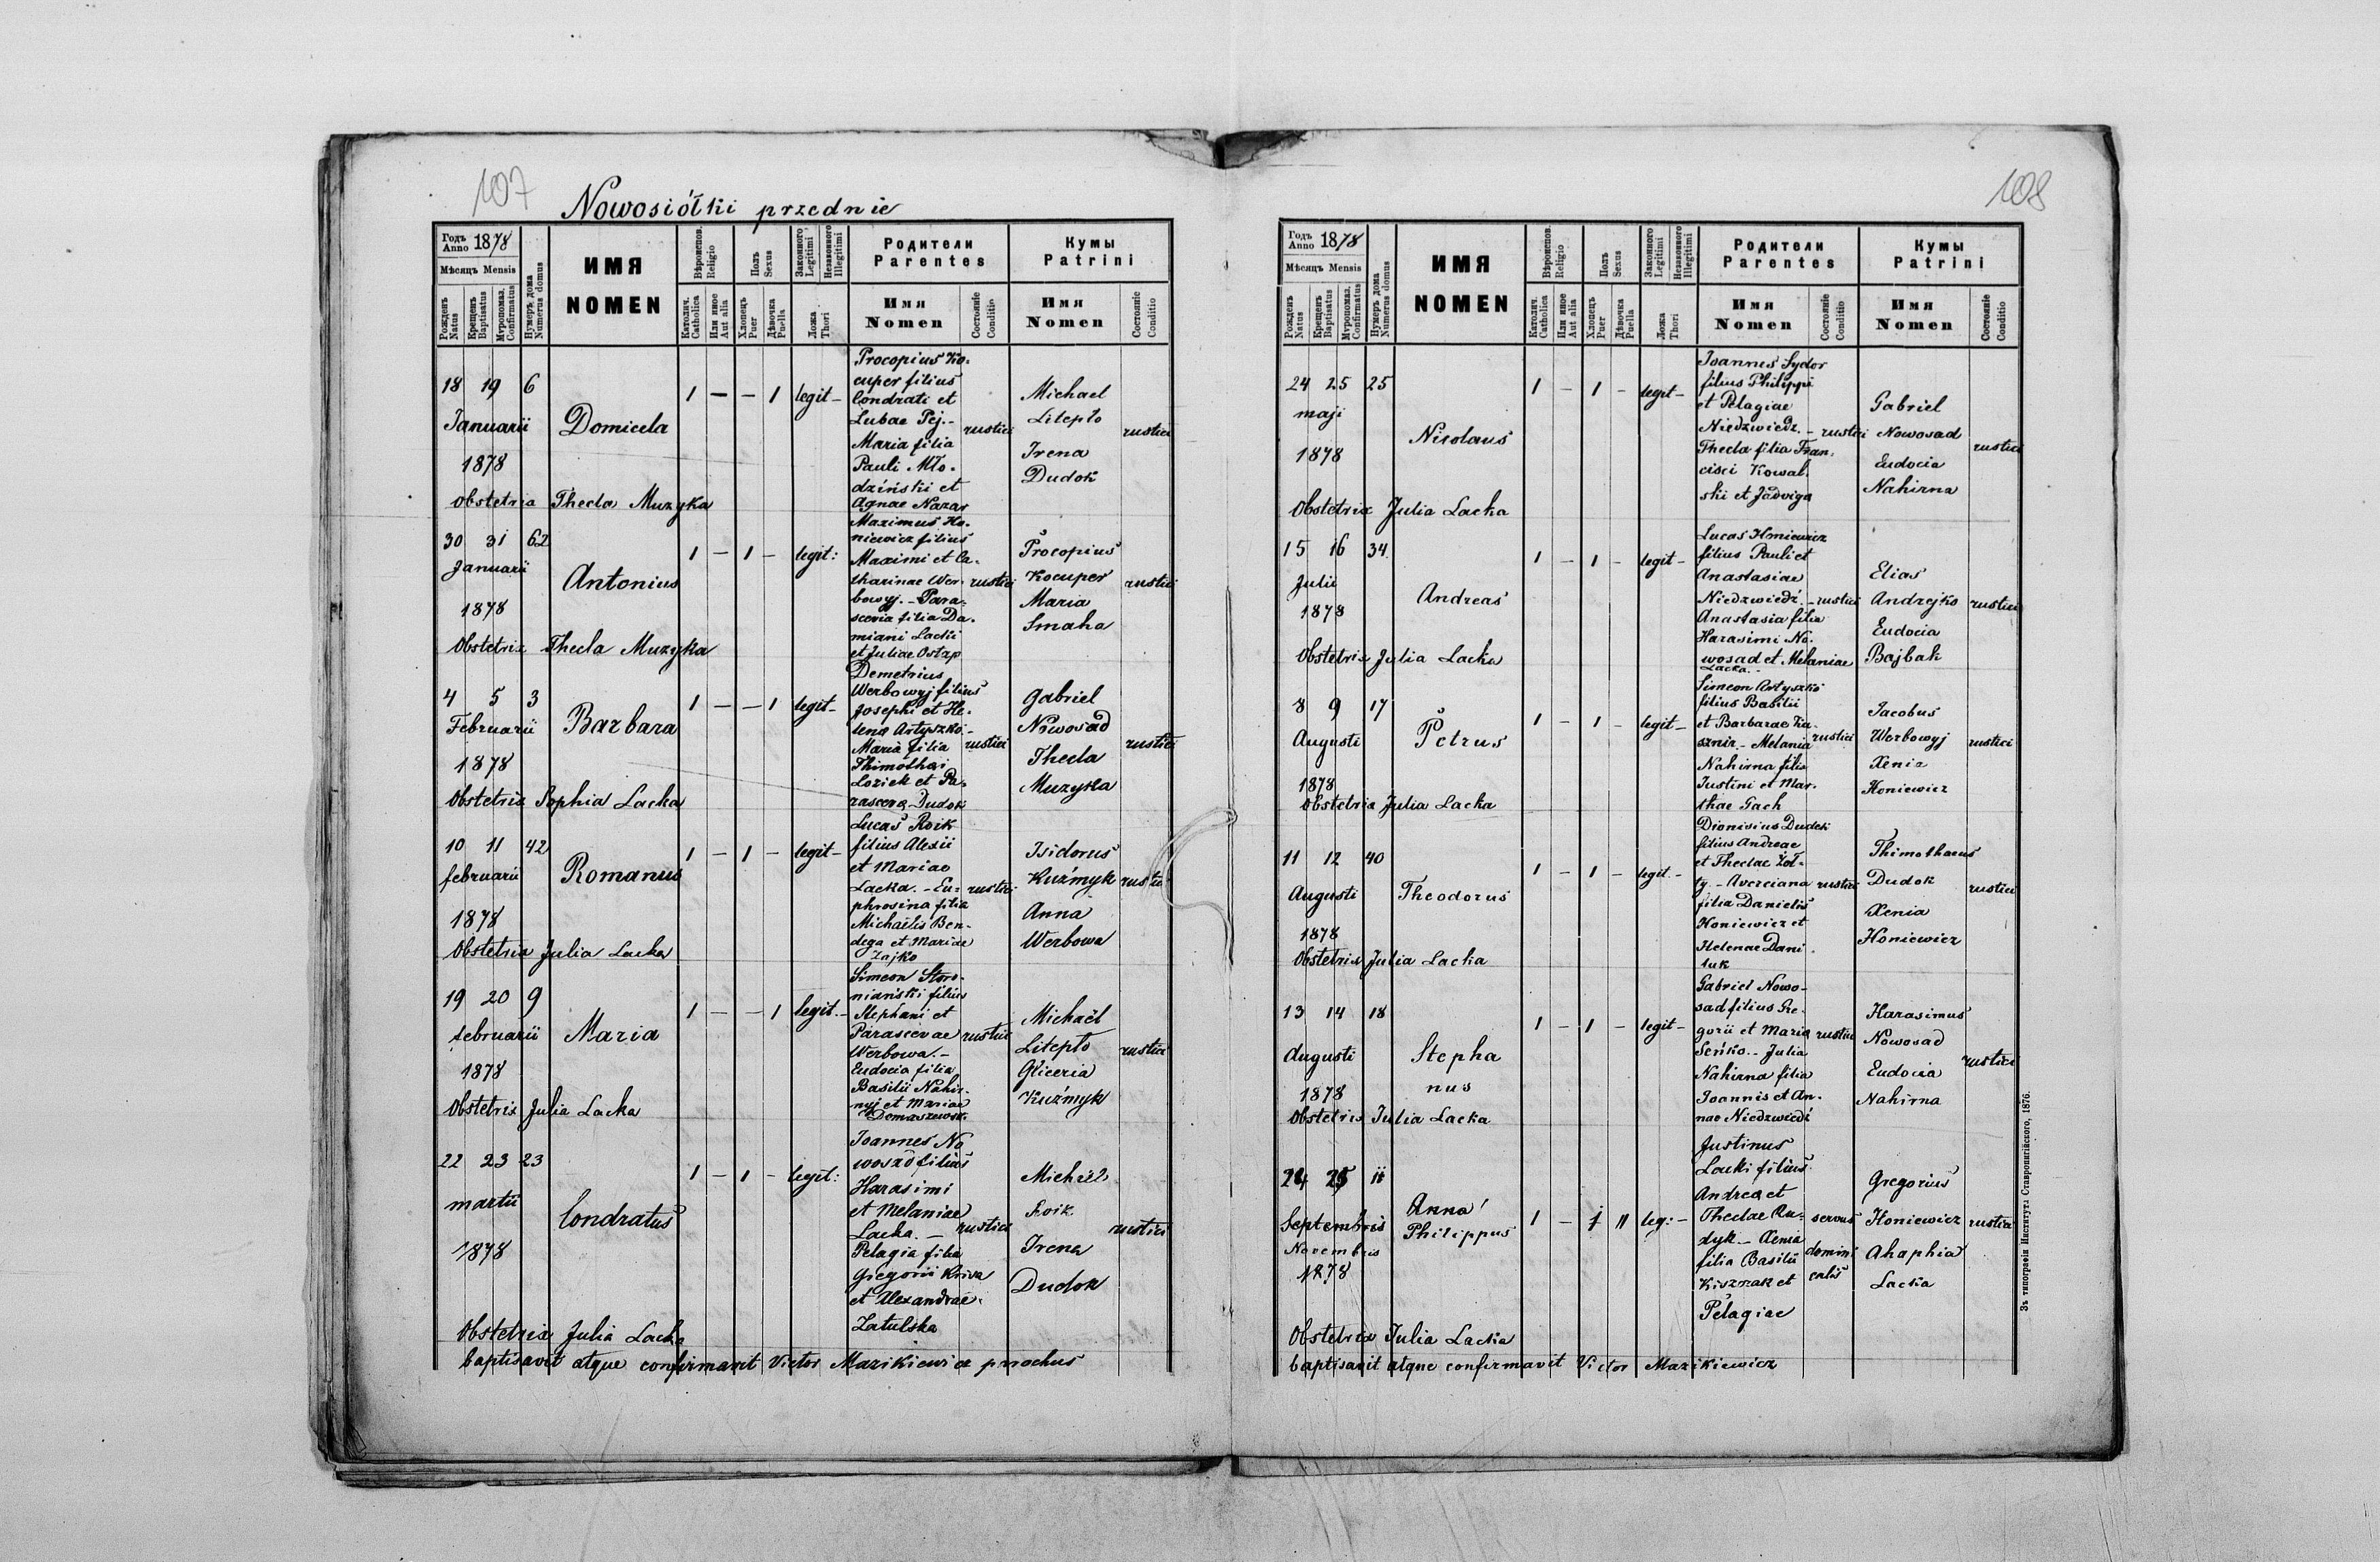 107
Nowosiółki przednie
Годъ Anno 1878
Мѣсяцъ Mensis
Рожденъ Natus
Крещенъ Baptisatus
Мѵропомаз. Confirmatus
Нумеръ дома Numerus domus
ИМЯ
NOMEN
Вѣроисповѣд. Religio
Католич. Catholica
Или иное Aut alia
Полъ Sexus
Хлопецъ Puer
Дѣвочка Puella
Законного Legitimi
Незаконного Illegitimi
Ложа Thori
Родители
Parentes
Имя
Nomen
Состояніе Conditio
Кумы
Patrini
Имя
Nomen
Состояніе Conditio
18 19 6
Januarii
1878
Domicela
1 — — 1 legit —
Procopius Ko-
cuper filius
Condrati et
Lubae Pej.-
Maria filia
Pauli Mło-
dziński et
Agnae Nazar
rustici
Michael
Litepło
Irena
Dudok
rustici
Obstetrix Thecla Muzyka
30 31 62
Januarii
1878
Antonius
1 — 1 — legit:
Maximus Ho-
niewicz filius
Maximi et Ca-
tharinae Wer-
bowyj. - Para-
scevia filia Da-
miani Lacki
et Juliae Ostap
rustici
Procopius
Kocuper
Maria
Smaha
rustici
Obstetrix Thecla Muzyka
4 5 3
Februarii
1878
Barbara
1 — — 1 legit —
Demetrius
Werbowyj filius
Josephi et He-
lena Artyszko -
Maria filia
Thimothei
Loziek et Pa-
rasceva Dudok
rustici
Gabriel
Nowosad
Thecla
Muzyka
rustici
Obstetrix Sophia Lacka
10 11 42
februarii
1878
Romanus
1 — 1 — legit —
Lucas Roik
filius Alexii
et Mariae
Lacka. - Eu-
phrosina filia
Michaelis Ben-
dega et Mariae
Zajko
rustici
Isidorus
Kuźmyk
Anna
Werbowa
rustici
Obstetrix Julia Lacka
19 20 9
februarii
1878
Maria
1 — — 1 legit. -
Simeon Storo-
niański filius
Stephani et
Parascevae
Werbowa. -
Eudocia filia
Basilii Nahir-
nyj et Mariae
Domaszewsk.
rustici
Michaël
Litepło
Gliceria
Kuźmyk
rustici
Obstetrix Julia Lacka
22 23 23
martii
1878
Condratus
1 — 1 — legit:
Joannes No
wosad filius
Harasimi
et Melaniae
Lacka. -
Pelagia filia
Gregorii Kriva
et Alexandrae
Zatulska
rustici
Michaël
Roik
Irena
Dudok
rustici
Obstetrix Julia Lacka
baptisavit atque confirmavit Victor Mazikiewicz parochus
108
Годъ Anno 1878
Мѣсяцъ Mensis
Рожденъ Natus
Крещенъ Baptisatus
Мѵропомаз. Confirmatus
Нумеръ дома Numerus domus
ИМЯ
NOMEN
Вѣроисповѣд. Religio
Католич. Catholica
Или иное Aut alia
Полъ Sexus
Хлопецъ Puer
Дѣвочка Puella
Законного Legitimi
Незаконного Illegitimi
Ложа Thori
Родители
Parentes
Имя
Nomen
Состояніе Conditio
Кумы
Patrini
Имя
Nomen
Состояніе Conditio
24 25 25
maji
1878
Nicolaus
1 — 1 — legit —
Joannes Sydor
filius Philippi
et Pelagiae
Niedzwiedz. -
Thecla filia Fran-
cisci Kowal-
ski et Jadviga
rustici
Gabriel
Nowosad
Eudocia
Nahirna
rustici
Obstetrix Julia Lacka
15 16 34
Julii
1878
Andreas
1 — 1 — legit —
Lucas Honiewicz
filius Pauli et
Anastasiae
Niedzwiedź. -
Anastasia filia
Harasimi No-
wosad et Melaniae
Lacka. -
rustici
Elias
Andrejko
Eudocia
Bajbak
rustici
Obstetrix Julia Lacka
8 9 17
Augusti
1878
Petrus
1 — 1 — legit —
Simeon Artyszko
filius Basilii
et Barbarae Ku-
sznir - Melania
Nahirna filia
Justini et Mar-
thae Gach
rustici
Jacobus
Werbowyj
Xenia
Honiewicz
rustici
Obstetrix Julia Lacka
11 12 40
Augusti
1878
Theodorus
1 — 1 — legit. -
Dionisius Dudok
filius Andreae
et Theclae Żoł-
ty - Averciana
filia Danielis
Honiewicz et
Helenae Dani
luk
rustici
Thimothaeus
Dudok
Xenia
Honiewicz
rustici
Obstetrix Julia Lacka
13 14 18
Augusti
1878
Stepha
nus
1 — 1 — legit —
Gabriel Nowo-
sad filius Gre-
gorii et Maria
Seńko. - Julia
Nahirna filia
Joannis et An-
nae Niedzwiedź
rustici
Harasimus
Nowosad
Eudocia
Nahirna
rustici
Obstetrix Julia Lacka
24 25 11
Septembris
Novembris
1878
Anna
Philippus
1 — 1 11 leg: -
Justinus
Lacki filius
Andrea et
Theclae Ru-
dyk - Xenia
filia Basilii
Kisznak et
Pelagiae
servus
domini
calis
Gregorius
Honiewicz
Ahaphia
Lacka
rustici
Obstetrix Julia Lacka
baptisavit atque confirmavit Victor Mazikiewicz
Зъ типографіи Института Ставропигійского, 1876.